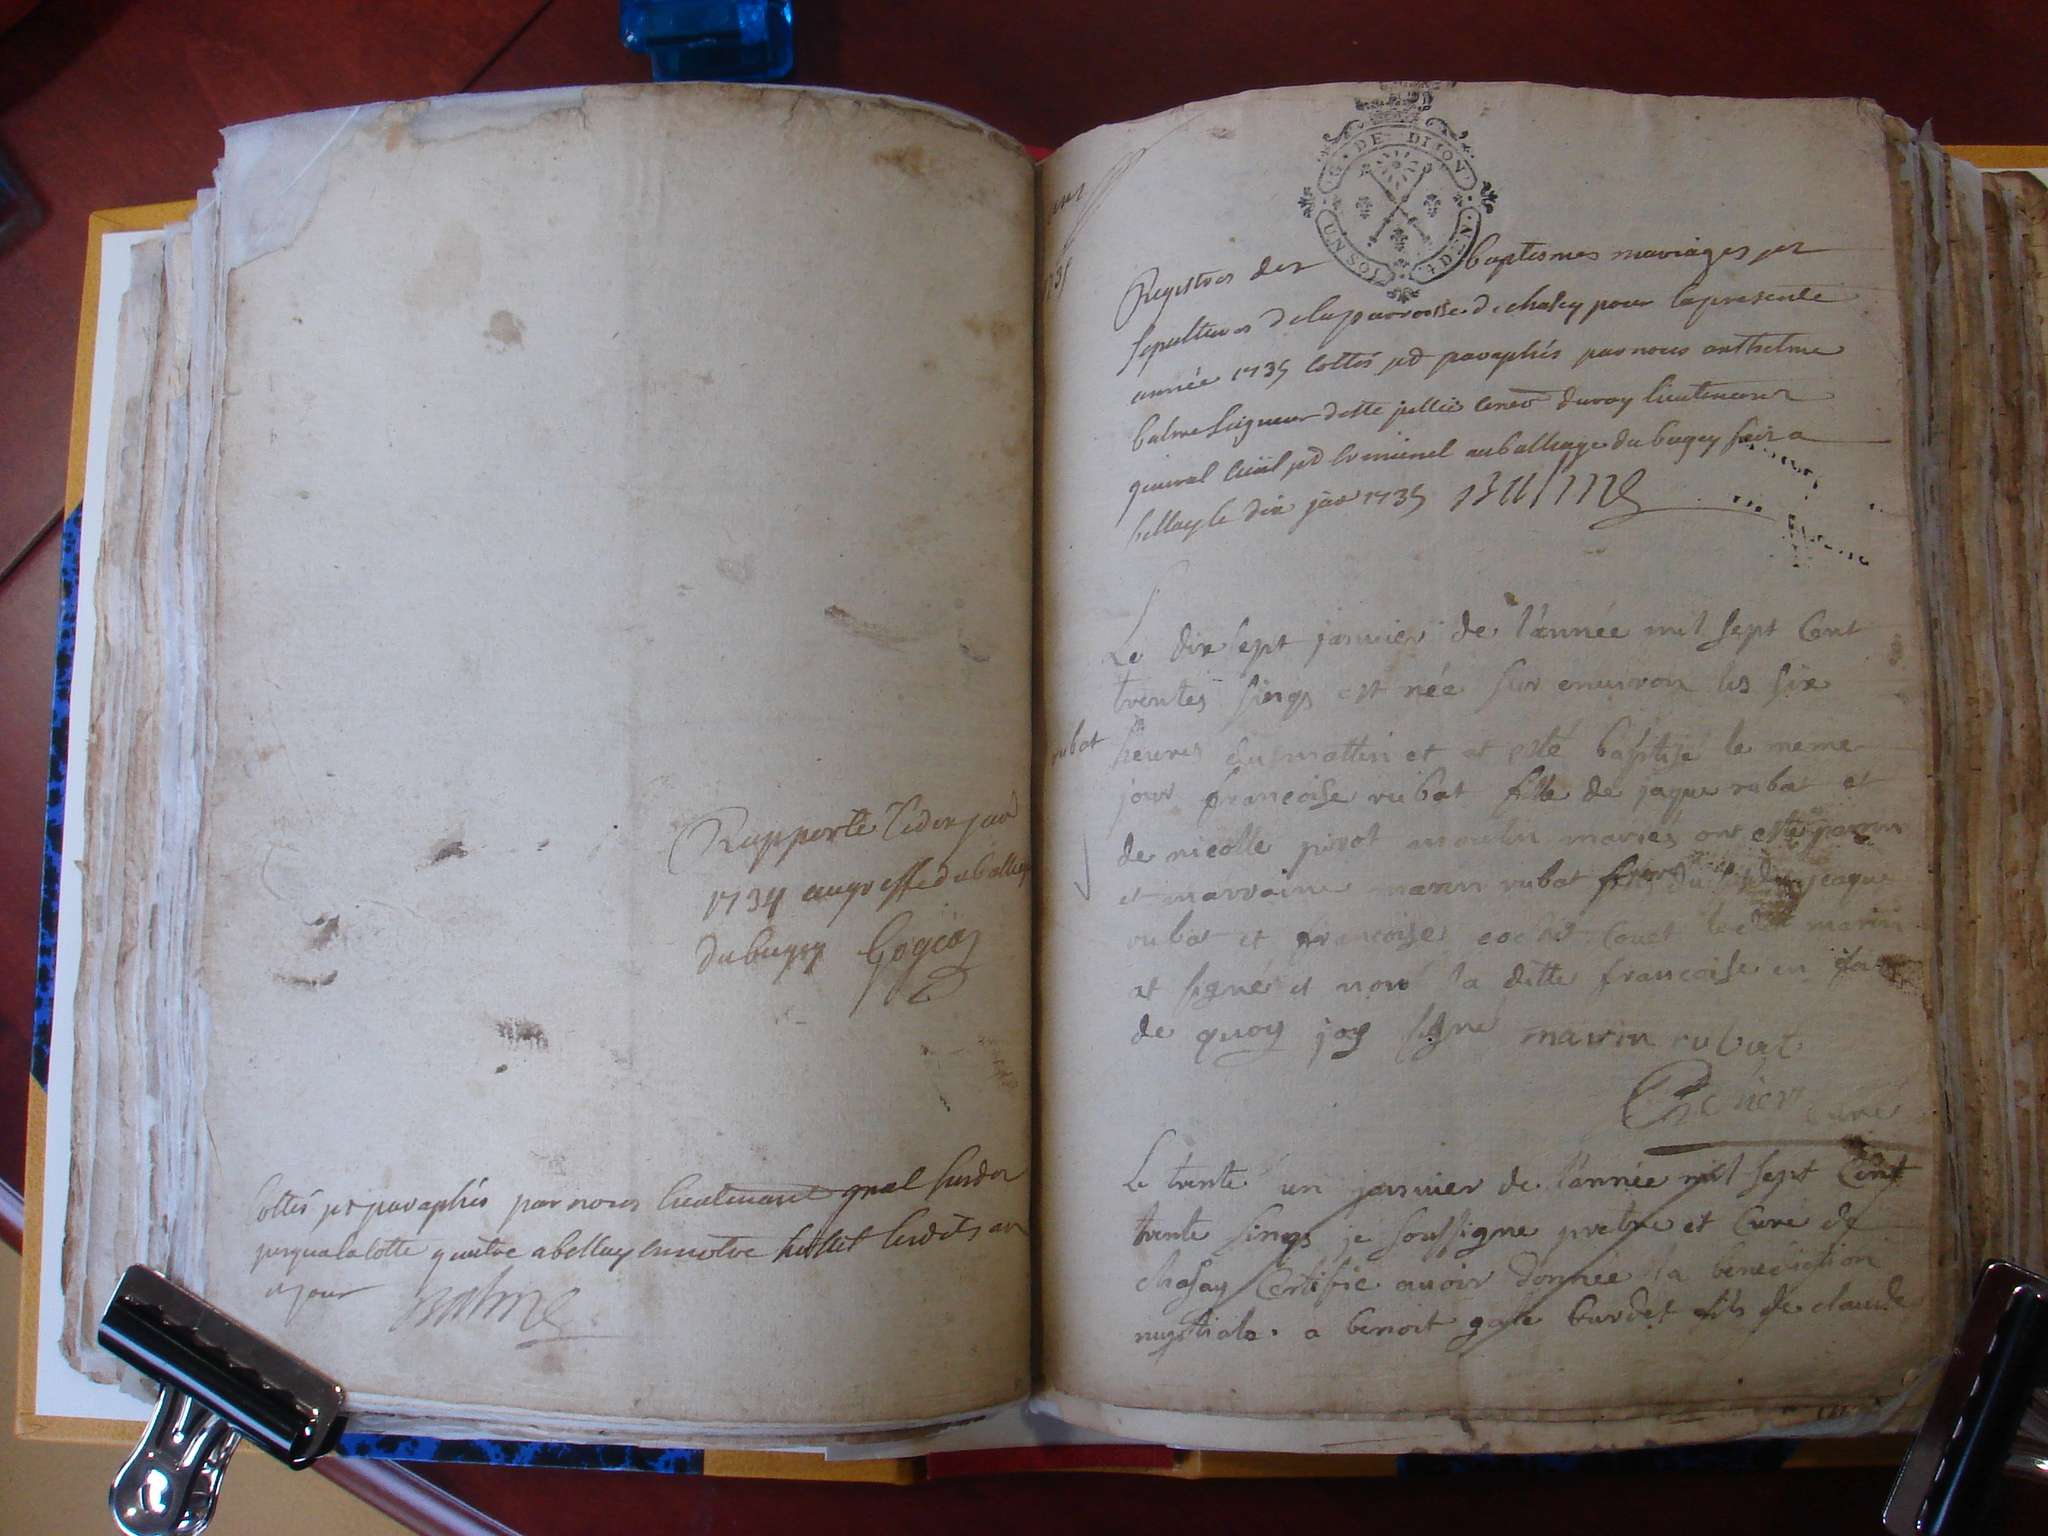 Rapporté le dix jav
1734 au greffe du balliage
du bugey
Cottés et paraphés par nous lieutenant gnal susdit
jusqua la cotte quatre a belley en notre hostel lesdits an
et jour Balme
1735
G. DE DIJON
UN SOS
Registres des baptesmes mariages et
sepultures de la parroisse de chasey pour la presente
année 1735 cottés et paraphés par nous anthelme
balme seigneur de ste jullie conser du roy lieutenant
general civil et criminel au balliage du bugey fait a
belley le dix jav 1735 Balme
Le dix sept janvier de l'année mil sept Cent
trentes sinqs est née sur enuiron les six
rubat
heures du mattin et at esté baptisé le meme
jour francoise rubat fille de jaque rubat et
de nicolle pirot mariés ont esté parrin
et marraine marin rubat du jaque
rubat et francoise le dit marin
at signé et non la ditte francoise en foy
de quoy jay signé marin rubat
curé
Le trente un janvier de l'année mil sept Cent
trente sinqs je soussigne pretre et Curé de
chasay Certifie auoir donnée la benediction
nuptiale a benoit gale burdet fils de claude